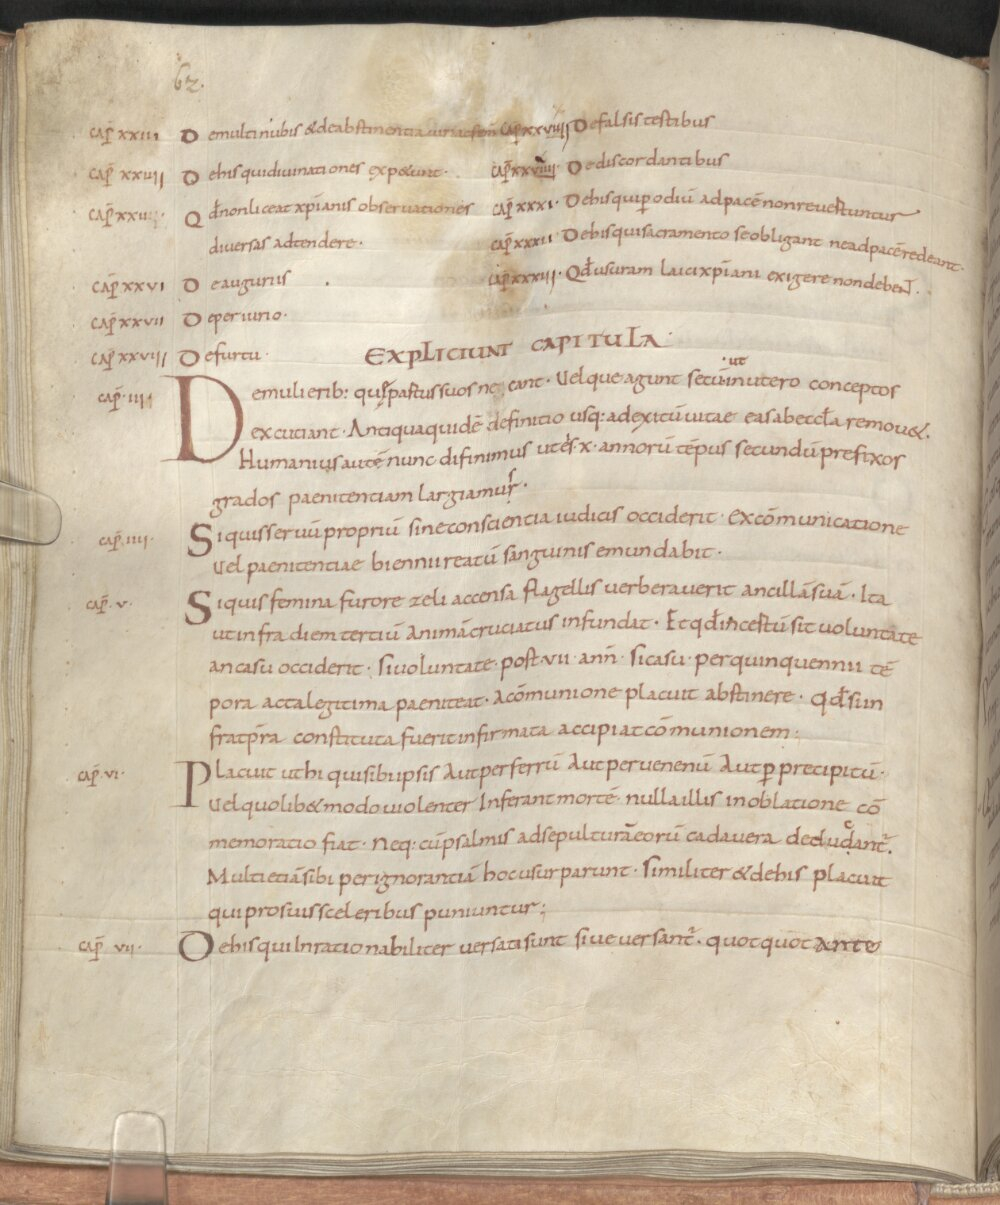 62.
CAP̄ XXIII De multinubis & de abstinentia
CAP̄ XXIIII De his qui diuinationes exp&unt.
CAP̄ XXV Qđ non liceat xp̄ianis obseruationes
diuersas adtendere.
CAP̄ XXVI De auguriis
CAP̄ XXVII De periurio.
CAP̄ XXVIII De furtu.
CAP̄ XXVIIII De falsis testibus
CAP̄ XXX De discordantibus
CAP̄ XXXI. De his qui p odiū ad pacē non reuertuntur
CAP̄ XXXII De his qui sacramento se obligant ne ad pacē redeant.
CAP̄ XXXIII. Qđ usuram laici xp̄iani exigere non debent.
EXPLICIUNT CAPITULA.
CAP̄. III De mulierib: qui partus suos necant. Uel que agunt secū ut in utero conceptos
excutiant. Antiqua quidē definitio usq: ad exitū uitae eas ab eccła remou&.
Humanius autē nunc difinimus ut eis .x. annorū tēpus secundū prefixos
grados paenitentiam largiamur.
CAP̄. IIII. Si quis seruū propriū sine conscientia iudicis occiderit. excōmunicatione
uel paenitentiae biennii reatū sanguinis emundabit.
CAP̄. V. Si quis femina furore zeli accensa flagellis uerberauerit ancillā suā. Ita
ut infra diem tertiū animā cruciatus infundat. Et qđ incestū sit uoluntate
an casu occiderit. si uoluntate. post .vii. ann̄. si casu. per quinquennii tē
pora acta legitima paeniteat. A cōmunione placuit abstinere. Qđ si in
fra tp̄ra constituta fuerit infirmata accipiat cōmunionem;
CAP̄. VI. Placuit ut hi qui sibi ipsis aut per ferrū aut per uenenū aut p precipitū.
uel quolib& modo uiolenter inferant mortē. nulla illis in oblatione cō
memoratio fiat. Neq: cū psalmis ad sepulturā eorū cadauera deducant̄.
Multi etiā sibi per ignorantiā hoc usurparunt. similiter & de his placuit
qui pro suis sceleribus puniuntur;
CAP̄ VII. De his qui inrationabiliter uersati sunt siue uersant̄. quotquot ante